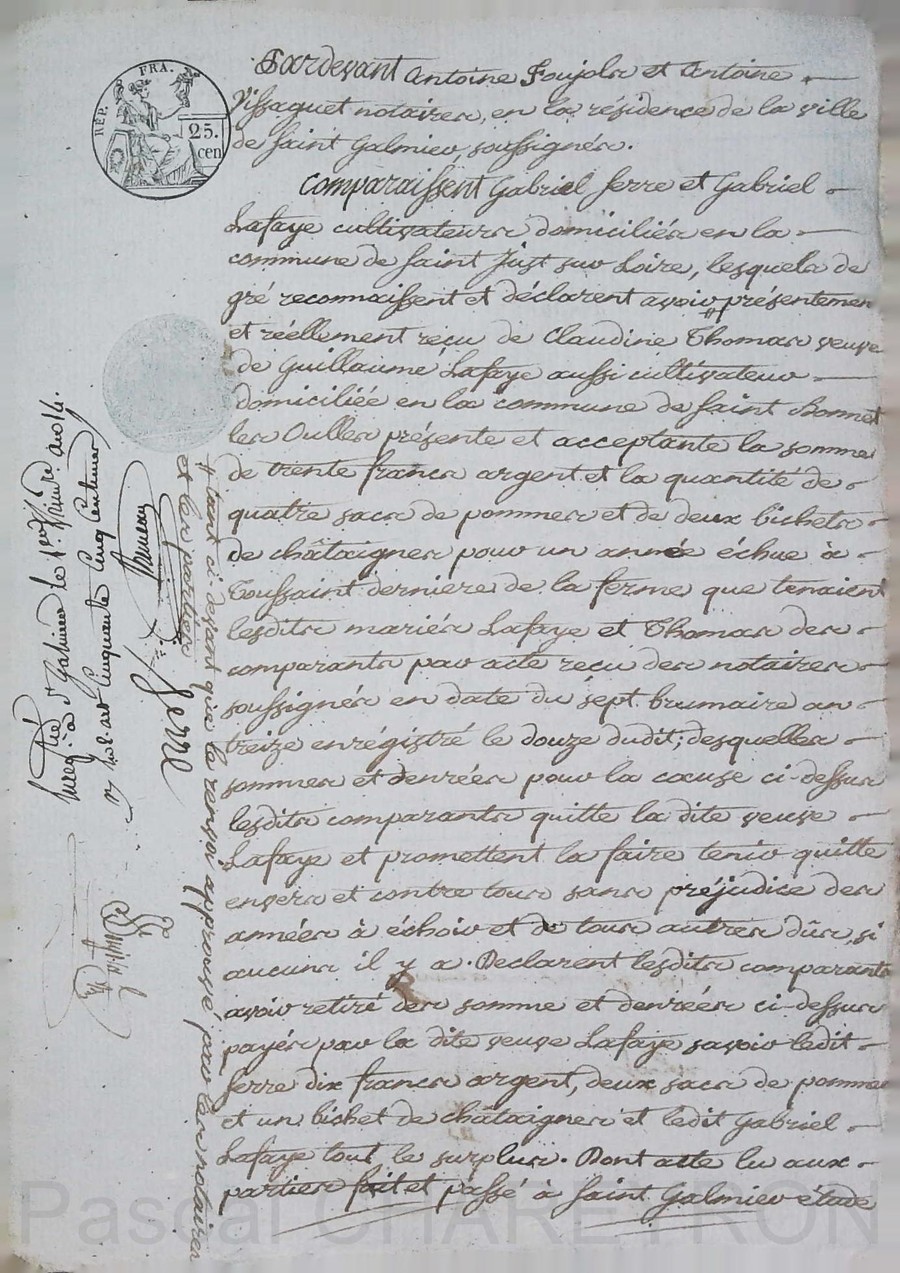 RÉP. FRA.
25.
cen
Pardevant Antoine Foujols et Antoine
Vissaguet notaires, en la résidence de la ville
de Saint Galmier, soussignés.
Comparaissent Gabriel Serre et Gabriel
Lafaye cultivateurs domiciliés en la
commune de Saint Just sur Loire, lesquels de
gré reconnaissent et déclarent avoir présentemen
et réellement reçu de Claudine Thomas veuve
de Guillaume Lafaye aussi cultivateur
domiciliée en la commune de Saint Bonnet
les Oulles présente et acceptante la somme
de trente francs argent et la quantité de
quatre sacs de pommes et de deux bichets
de châtaignes pour un année échue à
Toussaint dernière de la ferme que tenaient
lesdits mariés Lafaye et Thomas des
comparants par acte reçu des notaires
soussignés en date du sept brumaire an
treize enrégistré le douze dudit; desquelles
sommes et denrées pour la cause ci-dessus
lesdits comparants quitte la dite veuve
Lafaye et promettent la faire tenir quitte
envers et contre tous sans préjudice des
années à échoir et de tous autres dûs, si
aucuns il y a. Déclarent lesdits comparants
avoir retiré des somme et denrées ci-dessus
payés par la dite veuve Lafaye savoir ledit
Serre dix francs argent, deux sacs de pomme
et un bichet de châtaignes et ledit Gabriel
Lafaye tout le surplus. Dont acte lu aux
parties fait et passé à Saint Galmier étude
# tant ci devant que le renvoi approuvé par les notaires
et les parties
Serre
Enreg.tré à St Galmier le 1er frimaire an 14.
cinquante cinq centimes
Pascal CHAREYRON